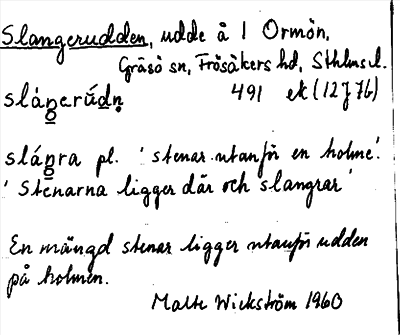 Slangerudden, udde å 1 Ormön,
Gräsö sn, Frösåkers hd, Sthlms l.
491 ek (12J 7b)
pl. 'stenar utanför en holme'.
'Stenarna ligger där och slangrar'
En mängd stenar ligger utanför udden
på holmen.
Malte Wickström 1960